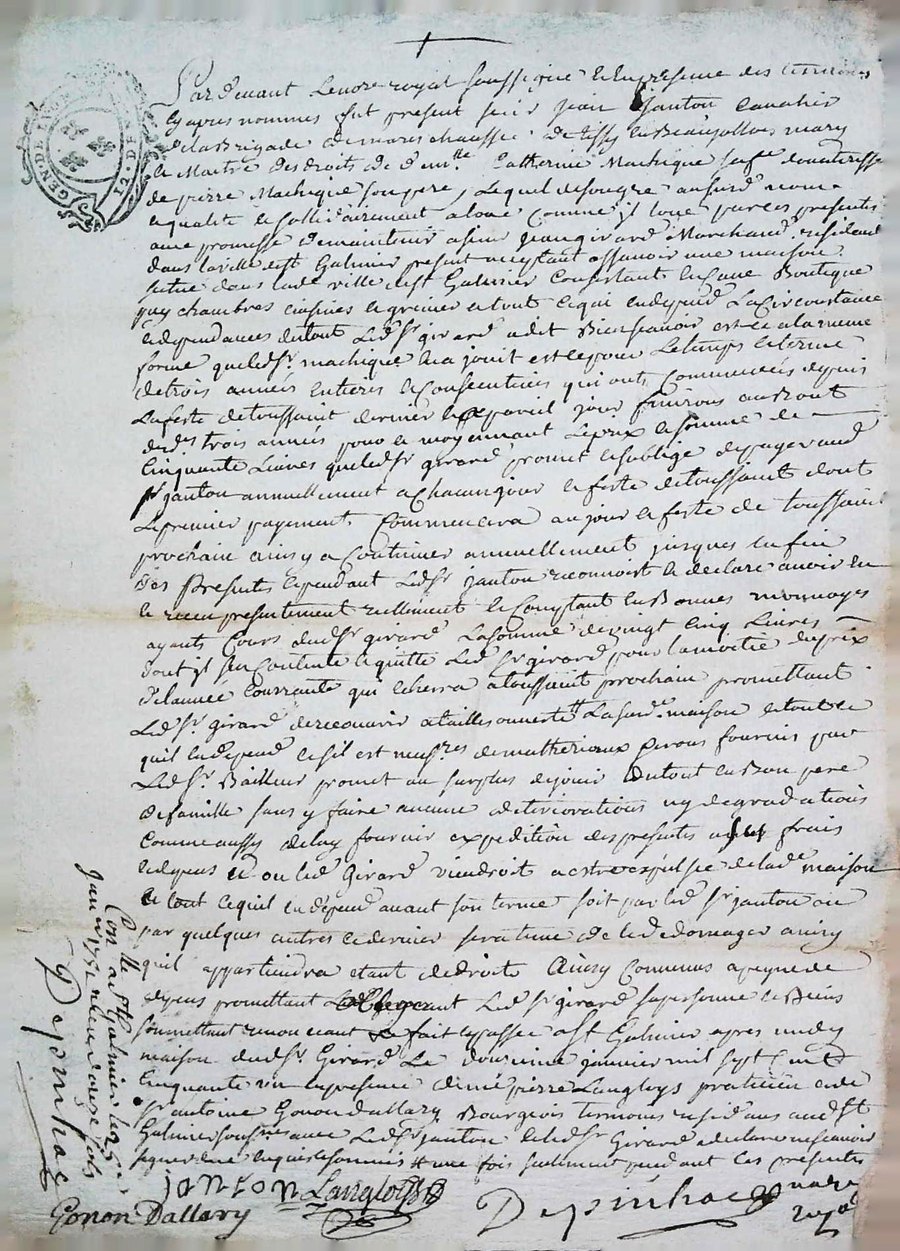 GEN. DE LYON
12. DEN.
Par devant Le no.re royal soussigné et En presence des temoins
Cy apres nommés fut present sieur jean janton Cavalier
de la Brigade de marechaussée de Tissy en Beaujollois mary
et Maitre des droits de dem.lle Catherine Machique sa f.e donatairesse
de pierre Machique son pere, Lequel de son gre aus.d nom
et qualité et sollidairement a loué Comme jl loue par ces presentes
avec promesse de maintenir a sieur jean girard Marchand residant
dans la ville de St Galmier present acceptant assavoir une maison
situé dans lad.e ville de St Galmier Consistant en Cave Boutique
puy chambres cuisines et grenier et tout ce qui en depend La Circonstance
et dependances du tout Led. sr girard a dit Bien scavoir est ce a la meme
forme que led. sr. machique en a jouit est ce pour Le temps et terme
de trois années Entieres et Consecutives qui ont Commencées depuis
La feste de toussaint dernier et a pareil jour finirons au Bout
desd.s trois années pour et moyennant Le prix et somme de
Cinquante Livres que led. sr girard promet et s'oblige de payer aud.
sr janton annuellement a Chacun jour et feste de toussaint dont
Le premier payement Commencera au jour et feste de toussaint
prochain ainsy a Continuer annuellement jusques en fin
Des Presentes Cependant Led. sr janton reconnoist et declare avoir eu
et receu presentement reellement et Comptant en Bonnes monnoyes
ayants Cours dud. sr girard La somme de vingt cinq Livres
dont jl s'en Contente et quitte Led. sr girard pour la moitié du prix
de l'année Courrante qui echerra a toussaint prochain promettant
Led. sr. girard de recouvrir a tailles ouverte # La sus.d.e maison et tout ce
qu'il en depend et s'il est necess.res de matteriaux seront fournis par
Led. sr. Bailleur promet au surplus de jouir du tout en Bon pere
de famille sans y faire aucune deteriorations ny degradations
Comme aussy de luy fournir expedition des presentes a ses frais
et depens et ou led. Girard viendroit a estre expulsée de lad.e maison
et tout ce qu'il en depend avant son terme soit par led. sr janton ou
par quelques autres ce dernier sera tenu de le dedomager ainsy
qu'il appartiendra etant de droits Ainsy Convenus a peyne de
depens promettant obligeant Led. sr girard sa personne et Biens
soumettant renonceant fait et passé a St Galmier apres midy
maison dud. sr. Girard Le douzieme janvier mil sept Cent
Cinquante un en presence de me pierre Langloys praticien et de
sr antoine Gonon dallary Bourgeois temoins residans aud. St
Galmier soussignes avec Led. sr janton et led. sr Girard a declaré ne scavoir
signer de ce enquis et sommis # une fois seulement pendant Les presentes
janton Langloys
Gonon Dallary
Depinhac no.re royal
Con.llé a St Galmier Le
janvier 1751 receu douze sols
Depinhac